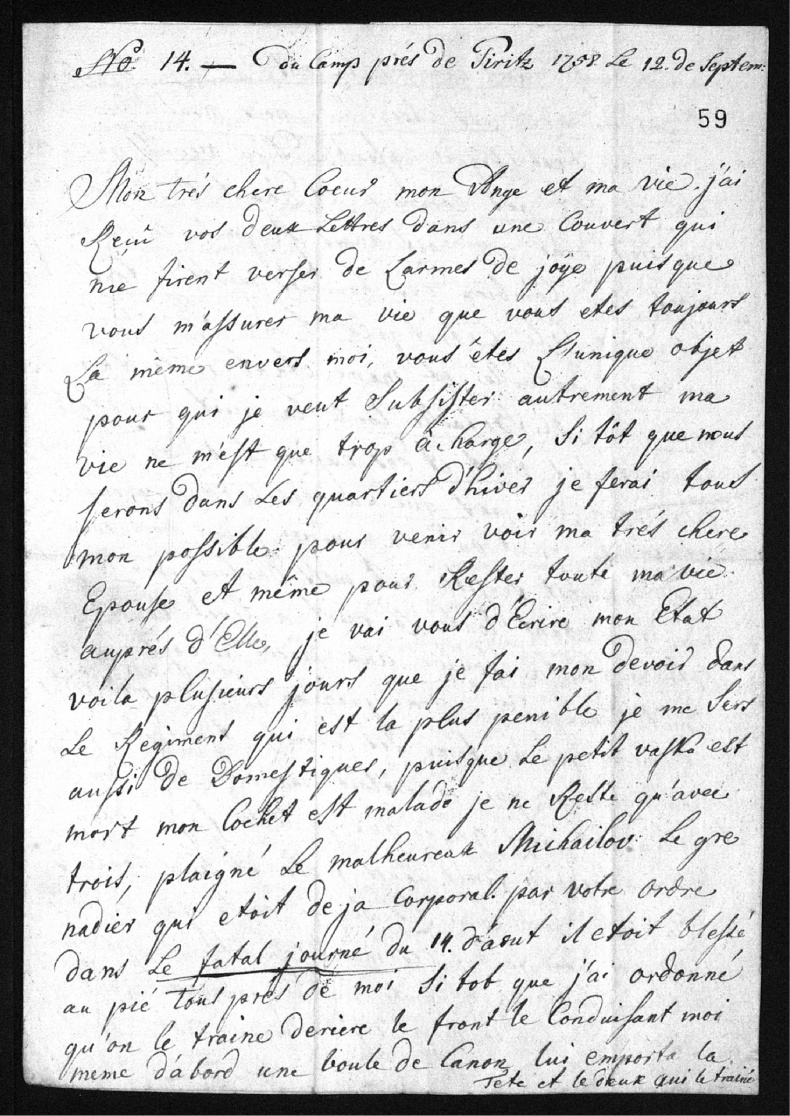 No. 14. — Du Camp prés de Piritz 1758 Le 12. de Septem:
59
Mon trés chere Coeur mon Ange et ma vie. j'ai
Reçû vos deux Lettres dans une Couvert qui
me firent verser de Larmes de joÿe puisque
vous m'assurer ma vie que vous etes toujours
La même envers moi, vous étes L'unique objet
pour qui je veut Subsister autrement ma
vie ne m'est que trop à charge, Si tôt que nous
serons dans Les quartiers d'hiver je ferai tous
mon possible pour venir voir ma trés chere
Epouse et même pour Raester toute ma vie
auprés d'Elle, je vai vous d'Ecrire mon Etat
voila plusieurs jours que je fai mon devoir dans
Le Regiment qui est la plus penible je me Sers
aussi de Domestiques, puisque Le petit vaska est
mort mon Cochet est malade je ne Reste qu'avec
trois, plaigné Le malheureux Michailov Le gre
nadier qui etoit deja Corporal par votre ordre
dans Le fatal journé du 14. d'aout il etoit blessé
au pié tous prés de moi Si tot que j'ai ordonné
qu'on le traine deriere le front le Conduisant moi
meme d'abord une boule de Canon lui emporta la
Tete et le deux qui le trainé